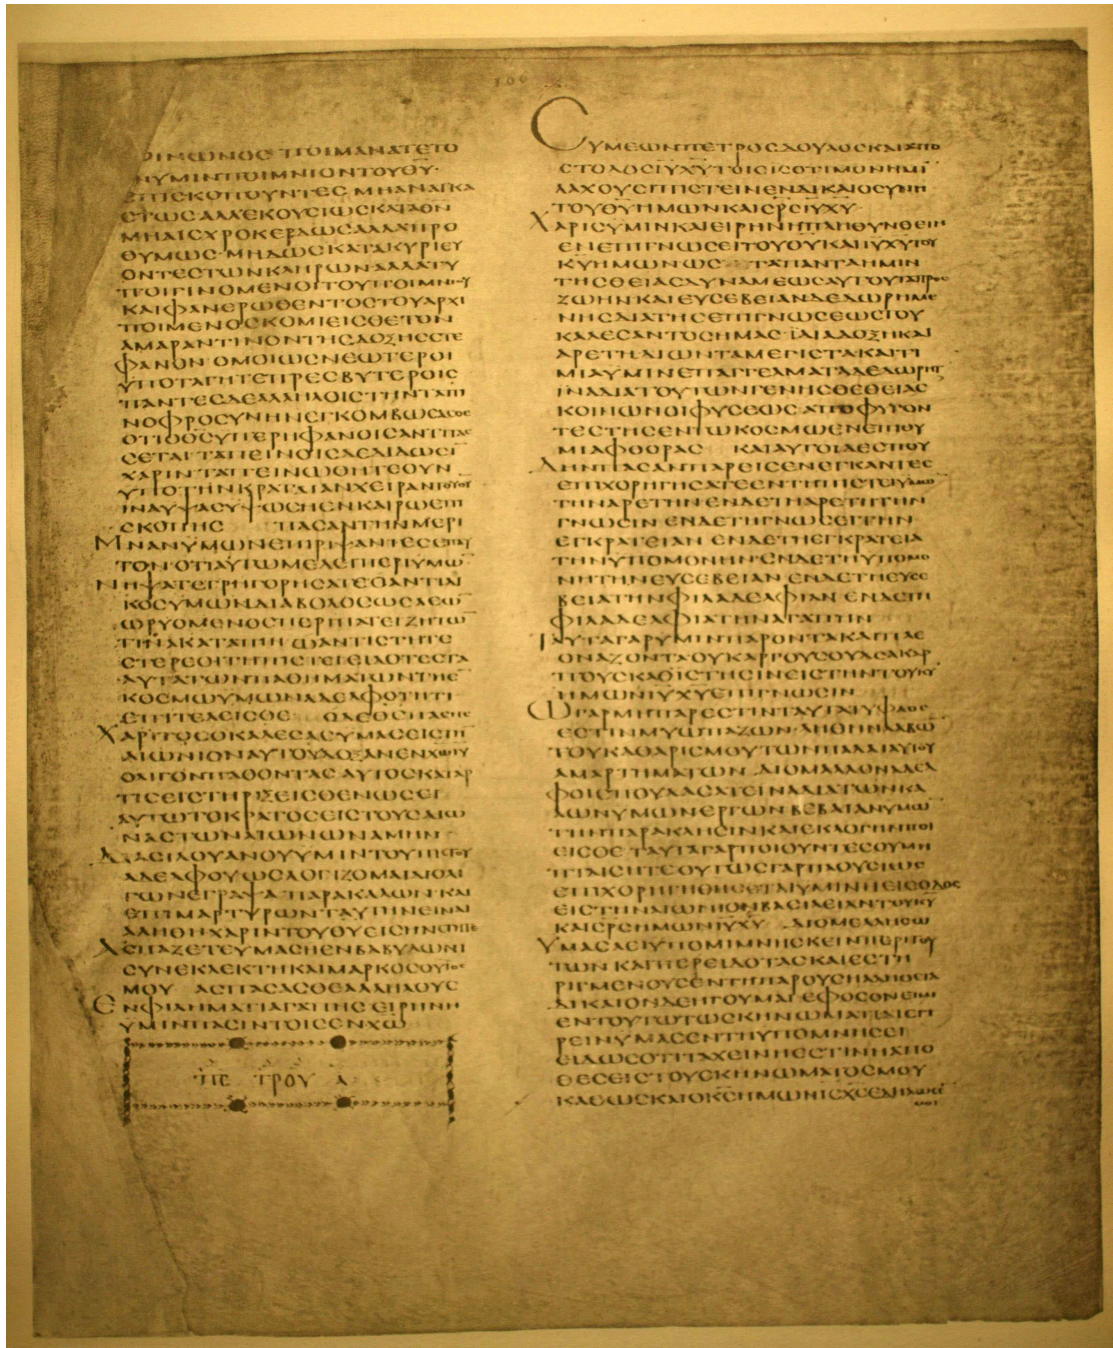 ΟΙΝΩΝΟΣ ΠΟΙΜΑΝΑΤΕΤΟ
ΥΜΙΝΠΟΙΜΝΙΟΝΤΟΥΘΥ·
ΕΠΙΣΚΟΠΟΥΝΤΕΣ ΜΗΑΝΑΓΚΑ
ΣΤΩΣ ΑΛΛΕΚΟΥΣΙΩΣΚΑΤΑΘΝ
ΜΗΑΙΣΧΡΟΚΕΡΔΩΣΑΛΛΑΠΡΟ
ΘΥΜΩΣ· ΜΗΔΩΣΚΑΤΑΚΥΡΙΕΥ
ΟΝΤΕΣΤΩΝΚΛΗΡΩΝ ΑΛΛΑΤΥ
ΠΟΙΓΙΝΟΜΕΝΟΙΤΟΥΠΟΙΜΝΙΟΥ
ΚΑΙΦΑΝΕΡΩΘΕΝΤΟΣΤΟΥΑΡΧΙ
ΠΟΙΜΕΝΟΣΚΟΜΙΕΙΣΘΕΤΟΝ
ΑΜΑΡΑΝΤΙΝΟΝΤΗΣΔΟΞΗΣΣΤΕ
ΦΑΝΟΝ ΟΜΟΙΩΣΝΕΩΤΕΡΟΙ
ΥΠΟΤΑΓΗΤΕΠΡΕΣΒΥΤΕΡΟΙΣ
ΠΑΝΤΕΣΔΕΑΛΛΗΛΟΙΣΤΗΝΤΑΠΙ
ΝΟΦΡΟΣΥΝΗΝΕΓΚΟΜΒΩΣΑΣΘΕ
ΟΤΙΟΘΣΥΠΕΡΗΦΑΝΟΙΣΑΝΤΙΤΑΣ
ΣΕΤΑΙΤΑΠΕΙΝΟΙΣΔΕΔΙΔΩΣΙ
ΧΑΡΙΝ ΤΑΠΕΙΝΩΘΗΤΕΟΥΝ
ΥΠΟΤΗΝΚΡΑΤΑΙΑΝΧΕΙΡΑΝΤΟΥΘΥ
ΙΝΑΥΜΑΣΥΨΩΣΗΕΝΚΑΙΡΩΕΠΙ
ΣΚΟΠΗΣ ΠΑΣΑΝΤΗΝΜΕΡΙ
ΜΝΑΝΥΜΩΝΕΠΙΡΙΨΑΝΤΕΣΕΠΑΥ
ΤΟΝ ΟΤΙΑΥΤΩΜΕΛΕΙΠΕΡΙΥΜΩ
ΝΗΨΑΤΕΓΡΗΓΟΡΗΣΑΤΕΟΑΝΤΙΔΙ
ΚΟΣΥΜΩΝΔΙΑΒΟΛΟΣΩΣΛΕΩ
ΩΡΥΟΜΕΝΟΣΠΕΡΙΠΑΤΕΙΖΗΤΩ
ΤΙΝΑΚΑΤΑΠΙΗ ΩΑΝΤΙΣΤΗΤΕ
ΣΤΕΡΕΟΙΤΗΠΙΣΤΕΙΕΙΔΟΤΕΣΤΑ
ΑΥΤΑΤΩΝΠΑΘΗΜΑΤΩΝΤΗΕ
ΚΟΣΜΩΥΜΩΝΑΔΕΛΦΟΤΗΤΙ
ΕΠΙΤΕΛΕΙΣΘΕ ΟΔΕΘΣΠΑΣΗΣ
ΧΑΡΙΤΟΣΟΚΑΛΕΣΑΣΥΜΑΣΕΙΣΤΗ
ΑΙΩΝΙΟΝΑΥΤΟΥΔΟΞΑΝΕΝΧΩΙΥ
ΟΛΙΓΟΝΠΑΘΟΝΤΑΣ ΑΥΤΟΣΚΑΤΑΡ
ΤΙΣΕΙΣΤΗΡΙΞΕΙΣΘΕΝΩΣΕΙ
ΑΥΤΩΤΟΚΡΑΤΟΣΕΙΣΤΟΥΣΑΙΩ
ΝΑΣΤΩΝΑΙΩΝΩΝΑΜΗΝ·
ΔΙΑΣΙΛΟΥΑΝΟΥΥΜΙΝΤΟΥΠΙΣΤΟΥ
ΑΔΕΛΦΟΥΩΣΛΟΓΙΖΟΜΑΙΔΙΟΛΙ
ΓΩΝΕΓΡΑΨΑ ΠΑΡΑΚΑΛΩΝ ΚΑΙ
ΕΠΙΜΑΡΤΥΡΩΝΤΑΥΤΗΝΕΙΝΑΙ
ΑΛΗΘΗΧΑΡΙΝΤΟΥΘΥΕΙΣΗΝΣΤΗΤΕ
ΑΣΠΑΖΕΤΕΥΜΑΣΗΕΝΒΑΒΥΛΩΝΙ
ΣΥΝΕΚΛΕΚΤΗΚΑΙΜΑΡΚΟΣΟΥΙΟΣ
ΜΟΥ ΑΣΠΑΣΑΣΘΕΑΛΛΗΛΟΥΣ
ΕΝΦΙΛΗΜΑΤΙΑΓΑΠΗΣ ΕΙΡΗΝΗ
ΥΜΙΝΠΑΣΙΝΤΟΙΣΕΝΧΩ
ΠΕΤΡΟΥ Α
ΣΥΜΕΩΝΠΕΤΡΟΣΔΟΥΛΟΣΚΑΙΑΠΟ
ΣΤΟΛΟΣΙΥΧΥΤΟΙΣΙΣΟΤΙΜΟΝΗΜΙ
ΛΑΧΟΥΣΙΠΙΣΤΕΙΝΕΝΔΙΚΑΙΟΣΥΝΗ
ΤΟΥΘΥΗΜΩΝΚΑΙΣΡΣΙΥΧΥ·
ΧΑΡΙΣΥΜΙΝΚΑΙΕΙΡΗΝΗΠΛΗΘΥΝΘΕΙΗ
ΕΝΕΠΙΓΝΩΣΕΙΤΟΥΘΥΚΑΙΙΥΧΥΤΟΥ
ΚΥΗΜΩΝΩΣ ΤΑΠΑΝΤΑΗΜΙΝ
ΤΗΣΘΕΙΑΣΔΥΝΑΜΕΩΣΑΥΤΟΥΤΑΠΡΟΣ
ΖΩΗΝ ΚΑΙΕΥΣΕΒΕΙΑΝΔΕΔΩΡΗΜΕ
ΝΗΣΔΙΑΤΗΣΕΠΙΓΝΩΣΕΩΣΤΟΥ
ΚΑΛΕΣΑΝΤΟΣΗΜΑΣ ΙΔΙΑΔΟΞΗΚΑΙ
ΑΡΕΤΗΔΙΩΝΤΑΜΕΓΙΣΤΑΚΑΙΤΙ
ΜΙΑΥΜΙΝΕΠΑΓΓΕΛΜΑΤΑΔΕΔΩΡΗΤΕ
ΙΝΑΔΙΑΤΟΥΤΩΝΓΕΝΗΣΘΕΘΕΙΑΣ
ΚΟΙΝΩΝΟΙΦΥΣΕΩΣ ΑΠΟΦΥΓΟΝ
ΤΕΣΤΗΣΕΝΤΩΚΟΣΜΩΕΝΕΠΙΘΥ
ΜΙΑΦΘΟΡΑΣ ΚΑΙΑΥΤΟΙΔΕΣΠΟΥ
ΔΗΝΠΑΣΑΝΠΑΡΕΙΣΕΝΕΓΚΑΝΤΕΣ
ΕΠΙΧΟΡΗΓΗΣΑΤΕΕΝΤΗΠΙΣΤΕΙΥΜΩ
ΤΗΝΑΡΕΤΗΝ ΕΝΔΕΤΗΑΡΕΤΗΤΗΝ
ΓΝΩΣΙΝ ΕΝΔΕΤΗΓΝΩΣΕΙΤΗΝ
ΕΓΚΡΑΤΕΙΑΝ ΕΝΔΕΤΗΕΓΚΡΑΤΕΙΑ
ΤΗΝΥΠΟΜΟΝΗΝ·ΕΝΔΕΤΗΥΠΟΜΟ
ΝΗΤΗΝΕΥΣΕΒΕΙΑΝ ΕΝΔΕΤΗΕΥΣΕ
ΒΕΙΑΤΗΝΦΙΛΑΔΕΛΦΙΑΝ ΕΝΔΕΤΗ
ΦΙΛΑΔΕΛΦΙΑΤΗΝΑΓΑΠΗΝ
ΤΑΥΤΑΓΑΡΥΜΙΝΠΑΡΟΝΤΑΚΑΙΠΛΕ
ΟΝΑΖΟΝΤΑΟΥΚΑΡΓΟΥΣΟΥΔΕΑΚΑΡ
ΠΟΥΣΚΑΘΙΣΤΗΣΙΝΕΙΣΤΗΝΤΟΥΚΥ
ΗΜΩΝΙΥΧΥΕΠΙΓΝΩΣΙΝ
ΩΓΑΡΜΗΠΑΡΕΣΤΙΝΤΑΥΤΑΤΥΦΛΟΣ
ΕΣΤΙΝΜΥΩΠΑΖΩΝ·ΛΗΘΗΝΛΑΒΩ
ΤΟΥΚΑΘΑΡΙΣΜΟΥΤΩΝΠΑΛΑΙΑΥΤΟΥ
ΑΜΑΡΤΗΜΑΤΩΝ ΔΙΟΜΑΛΛΟΝΑΔΕΛ
ΦΟΙΣΠΟΥΔΑΣΑΤΕΙΝΑΔΙΑΤΩΝΚΑ
ΛΩΝΥΜΩΝΕΡΓΩΝ ΒΕΒΑΙΑΝΥΜΩ
ΤΗΝΠΑΡΑΚΛΗΣΙΝΚΑΙΕΚΛΟΓΗΝΠΟΙ
ΕΙΣΘΕ ΤΑΥΤΑΓΑΡΠΟΙΟΥΝΤΕΣΟΥΜΗ
ΠΤΑΙΣΗΤΕΟΥΤΩΣΓΑΡΠΛΟΥΣΙΩΣ
ΕΠΙΧΟΡΗΓΗΘΗΣΕΤΑΙΥΜΙΝΗΕΙΣΟΔΟΣ
ΕΙΣΤΗΝΑΙΩΝΙΟΝΒΑΣΙΛΕΙΑΝΤΟΥΚΥ
ΚΑΙΣΡΣΗΜΩΝΙΥΧΥ ΔΙΟΜΕΛΛΗΣΩ
ΥΜΑΣΑΕΙΥΠΟΜΙΜΝΗΣΚΕΙΝΠΕΡΙΤΟΥ
ΤΩΝ ΚΑΙΠΕΡΕΙΔΟΤΑΣΚΑΙΕΣΤΗ
ΡΙΓΜΕΝΟΥΣΕΝΤΗΠΑΡΟΥΣΗΑΛΗΘΕΙΑ
ΔΙΚΑΙΟΝΔΕΗΓΟΥΜΑΙ ΕΦΟΣΟΝΕΙΜΙ
ΕΝΤΟΥΤΩΤΩΣΚΗΝΩΜΑΤΙΔΙΕΓΙ
ΡΕΙΝΥΜΑΣΕΝΤΗΥΠΟΜΝΗΣΕΙ
ΕΙΔΩΣΟΤΙΤΑΧΕΙΝΗΕΣΤΙΝΗΑΠΟ
ΘΕΣΕΙΣΤΟΥΣΚΗΝΩΜΑΤΟΣΜΟΥ
ΚΑΘΩΣΚΑΙΟΚΣΗΜΩΝΙΣΧΣΕΔΗΛΩΣΕ
ΜΟΙ